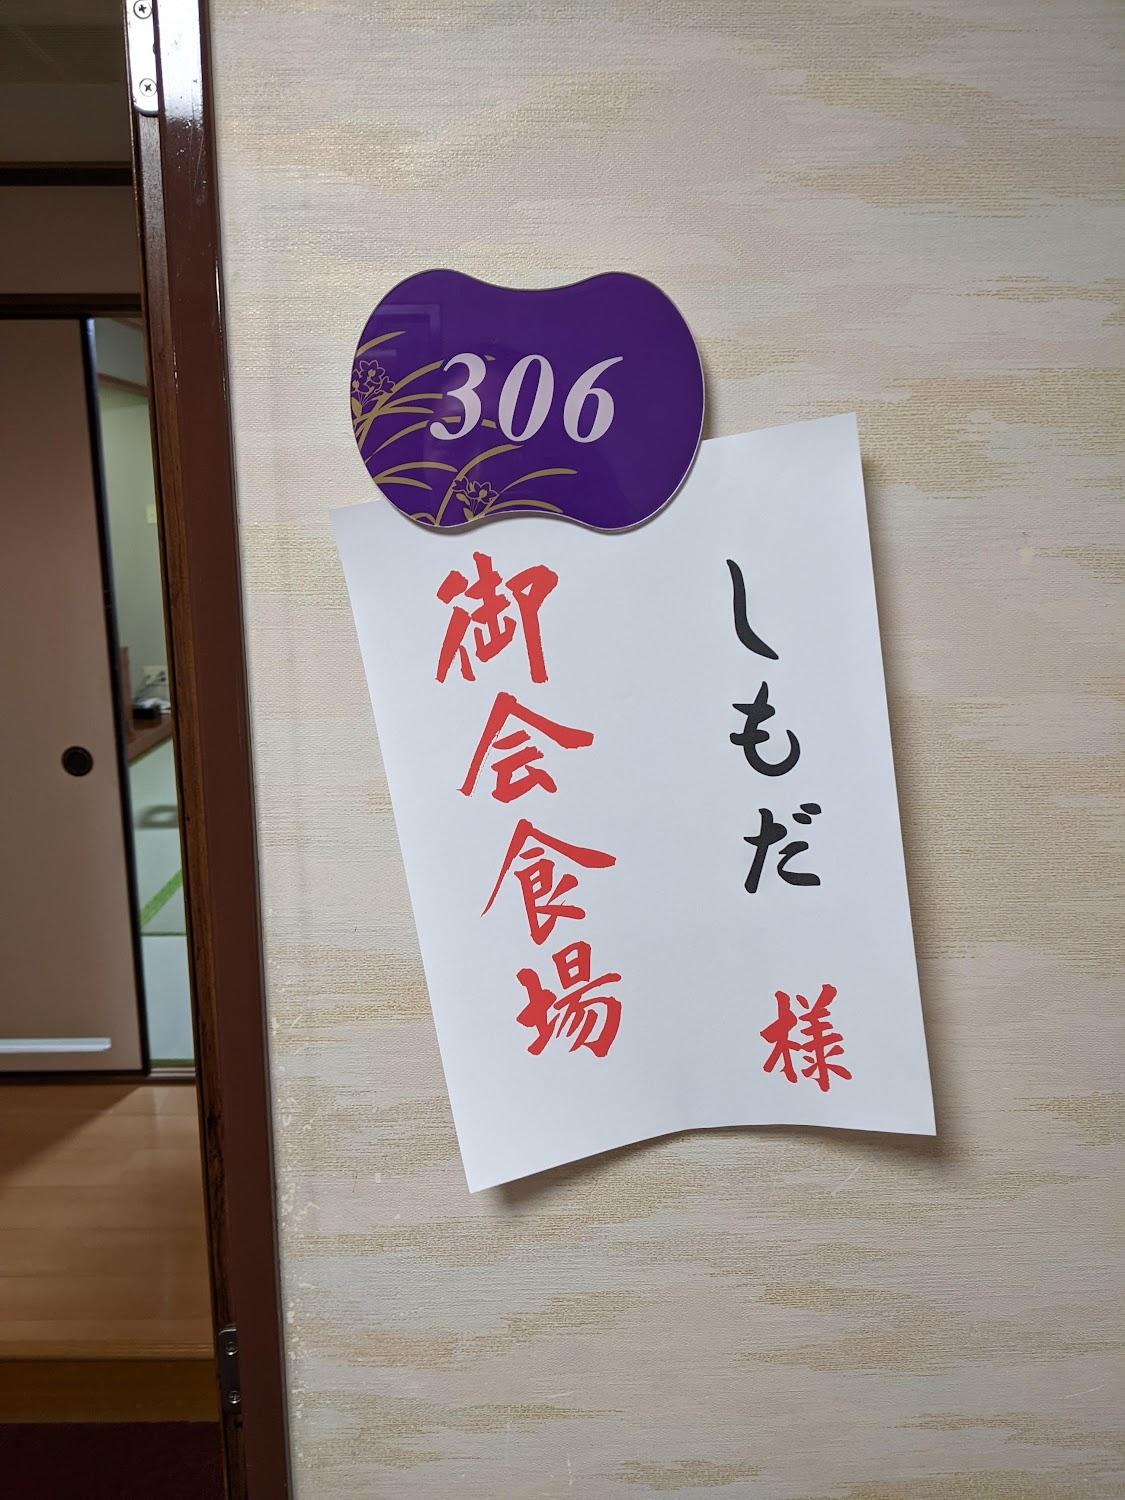 306
しもだ 様
御会食場